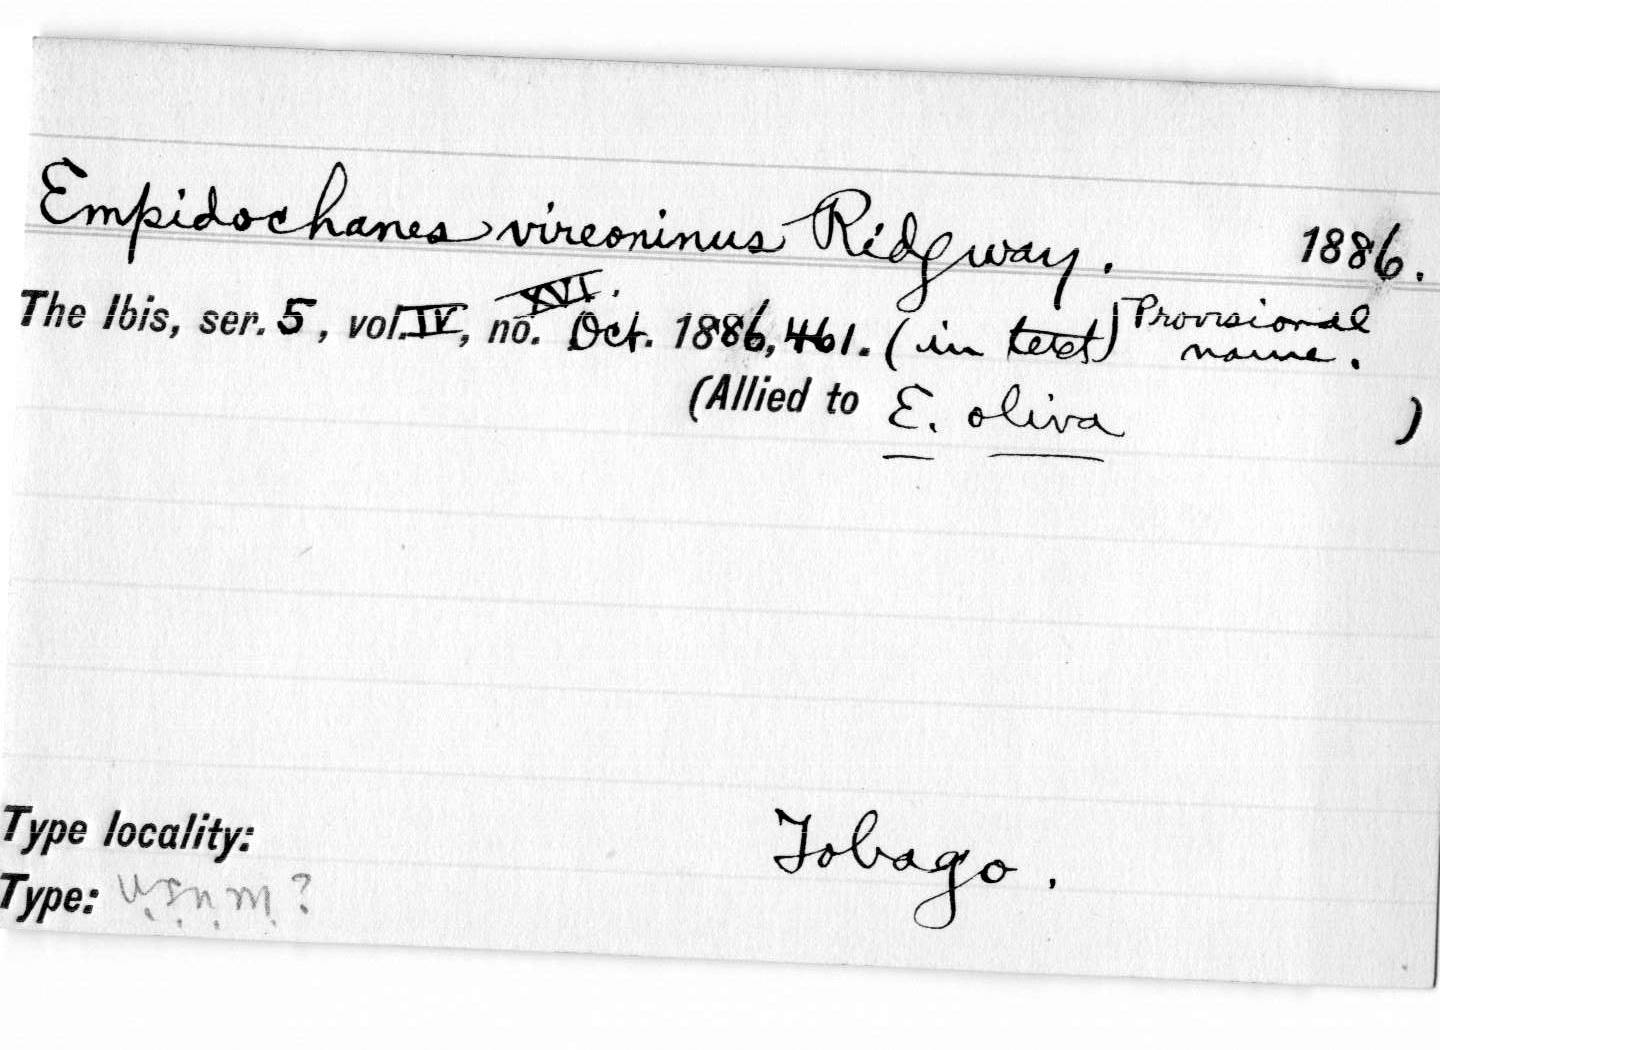 Empidochanes vireoninus Ridgway. 1886.
The Ibis, ser. 5, vol. IV, no. XVI. Oct. 1886, 461. (in text) Provisional name.
(Allied to E. oliva )
Type locality: Tobago.
Type: U.S.N.M.?